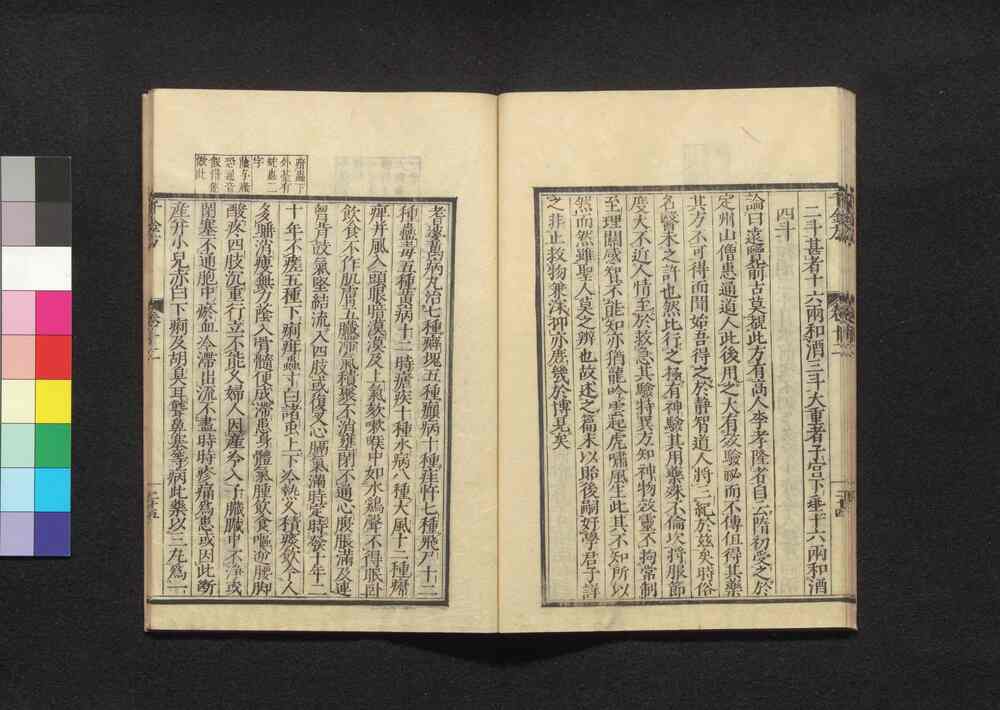 二斗甚者十六兩和酒三斗大重者子宮下垂十六兩和酒
四斗
論曰遠覽前古莫覩此方有高人李孝隆者自云隋初受之於
定州山僧惠通道人此後用之大有效驗祕而不傳但得其藥
其方不可得而聞始吾得之於靜智道人將三紀於茲矣時俗
名醫未之許也然比行之極有神驗其用藥殊不倫次將服節
度大不近人情至於救急其驗特異方知神物效靈不拘常制
至理關感智不能知亦猶龍吟雲起虎嘯風生此其不知所以
然而然雖聖人莫之辨也故述之篇末以貽後嗣好學君子詳
之非止救物兼深抑亦庶幾於博見矣
耆婆萬病丸治七種癖塊五種癲病十種疰忤七種飛尸十二
種蠱毒五種黃病十二時瘧疾十種水病八種大風十二種㿏
痺并風入頭眼暗漠漠及上氣欬嗽喉中如水鷄聲不得眠臥
飲食不作肌膚五臟滯氣積聚不消壅閉不通心腹脹滿及連
胷背鼓氣堅結流入四肢或復叉心膈氣滿時定時發十年二
十年不瘥五種下痢疳蟲寸白諸蟲上下冷熱久積痰飲令人
多睡消瘦無力蔭入骨髓便成滯患身體氣腫飲食嘔逆腰脚
酸疼四肢沉重行立不能久婦人因產冷入子臟臟中不淨或
閉塞不通胞中瘀血冷滯出流不盡時時疼痛爲患或因此斷
產并小兒赤白下痢及胡臭耳聾鼻塞等病此藥以三丸爲一